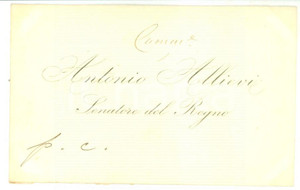 Antonio Allievi,
Senatore del Regno
p. c.